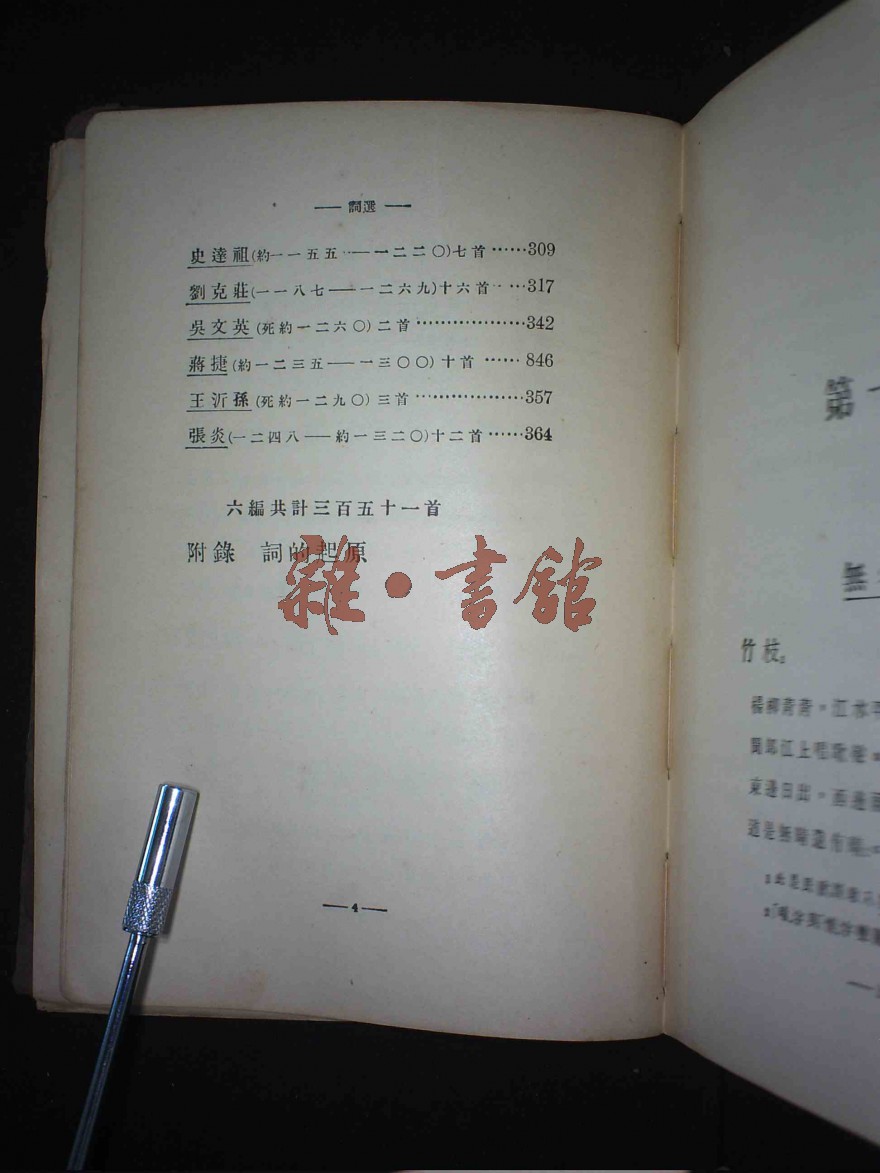 — 詞選 —
史達祖(約一一五五——一二二〇)七首……309
劉克莊(一一八七——一二六九)十六首……317
吳文英(死約一二六〇)二首………………342
蔣捷(約一二三五——一三〇〇)十首……846
王沂孫(死約一二九〇)三首………………357
張炎(一二四八——約一三二〇)十二首……364
六編共計三百五十一首
附錄 詞的起原
雜·書館
—4—
第
無
竹枝。
楊柳青青。江水平
聞郎江上唱歌聲。
東邊日出。西邊雨
道是無晴還有晴。